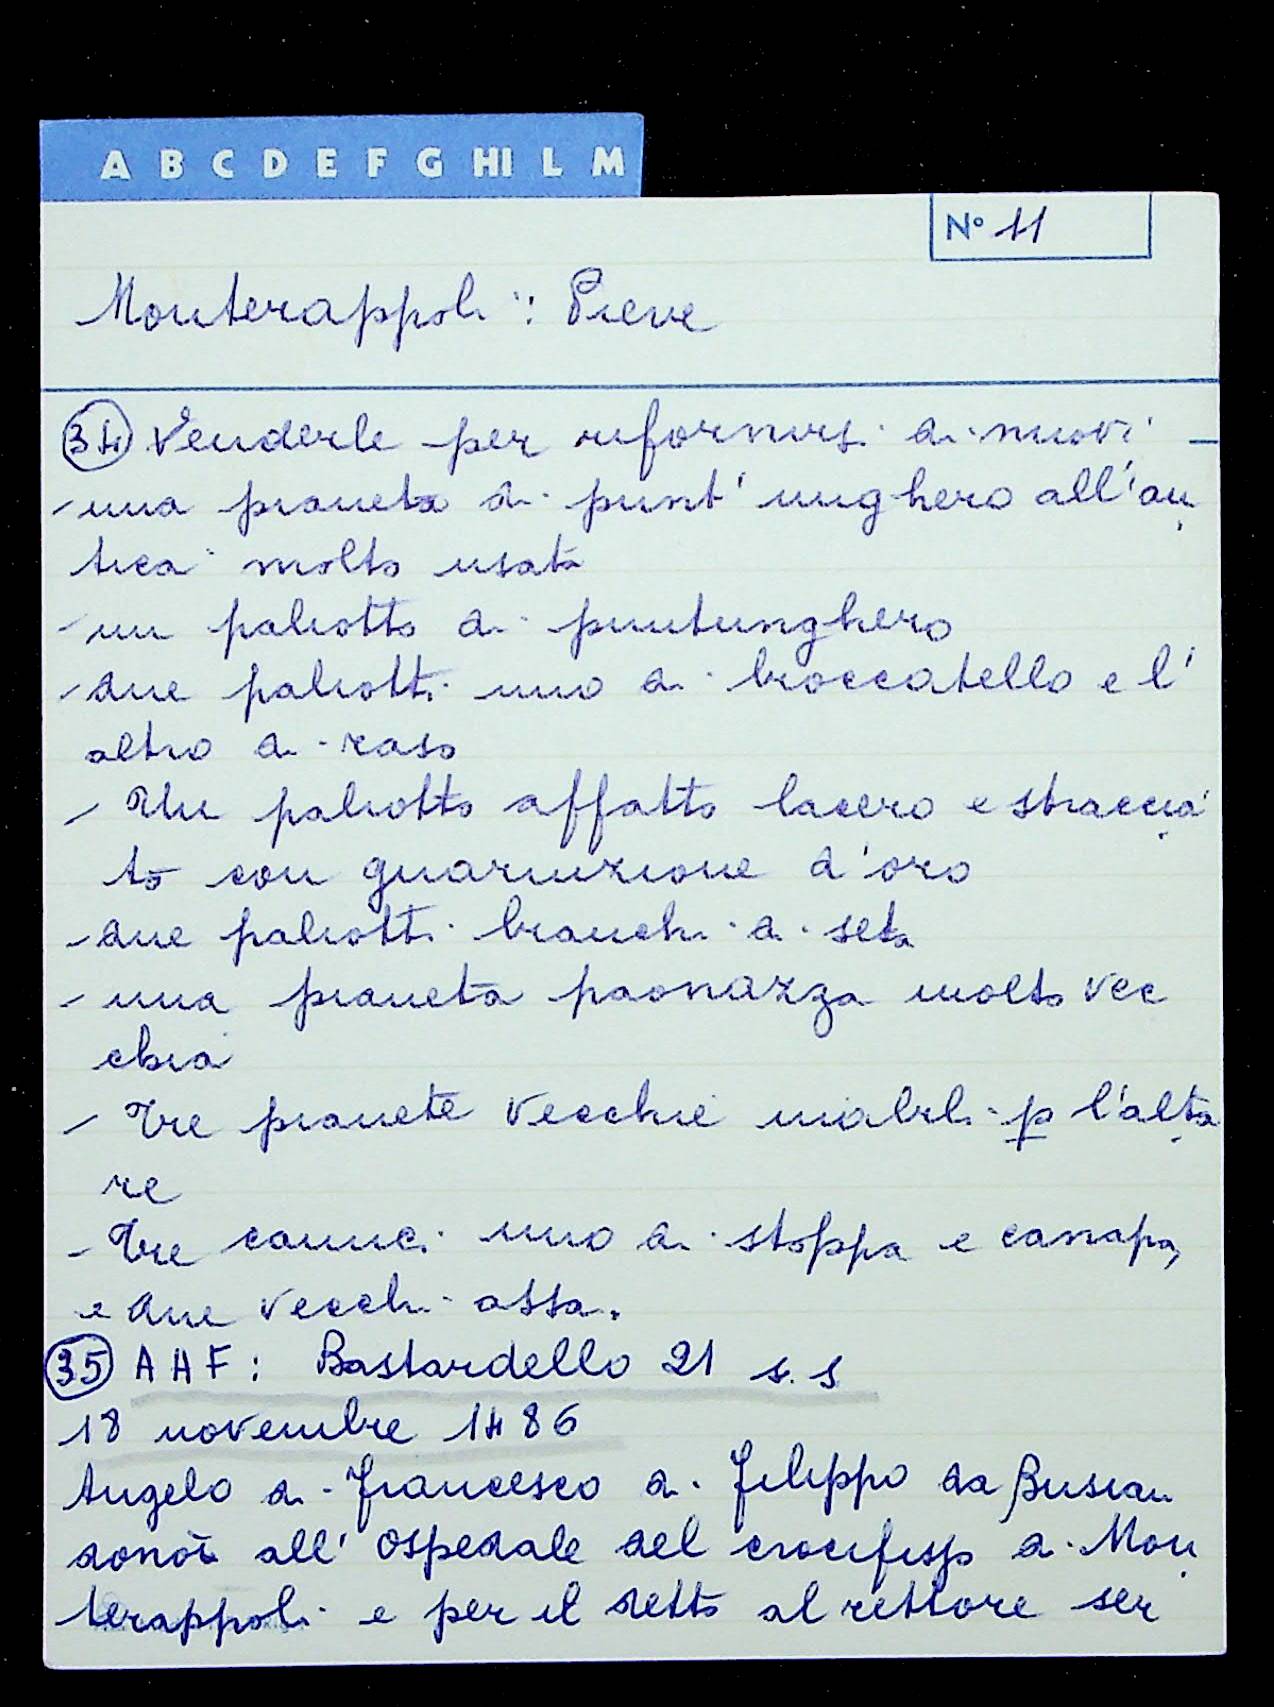 A B C D E F G HI L M
N° 11
Monterappoli: Pieve
34 Venderle per rifornirsi di nuovi –
- una pianeta di punt'unghero all'an
tica molto usata
- un paliotto di puntunghero
- due paliotti uno di broccatello e l'
altro di raso
- Un paliotto affatto lacero e straccia
to con guarnizione d'oro
- due paliotti bianchi di seta
- una pianeta paonazza molto vec
chia
- Tre pianete vecchie inabili p l'alta
re
- Tre camici uno di stoppa e canapa,
e due vecchi assa.
35 AHF: Bastardello 21 s.s
18 novembre 1486
Angelo di Francesco di Filippo da
donò all' Ospedale del crocifisso di Mon
terappoli e per il detto al rettore ser